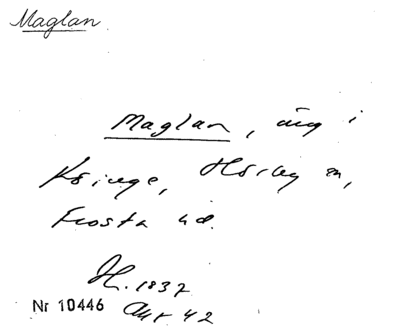 Maglan
Maglan, äng i
Köinge, Hörby sn,
Frosta hd.
H. 1837
Nr 10446 Akt 42